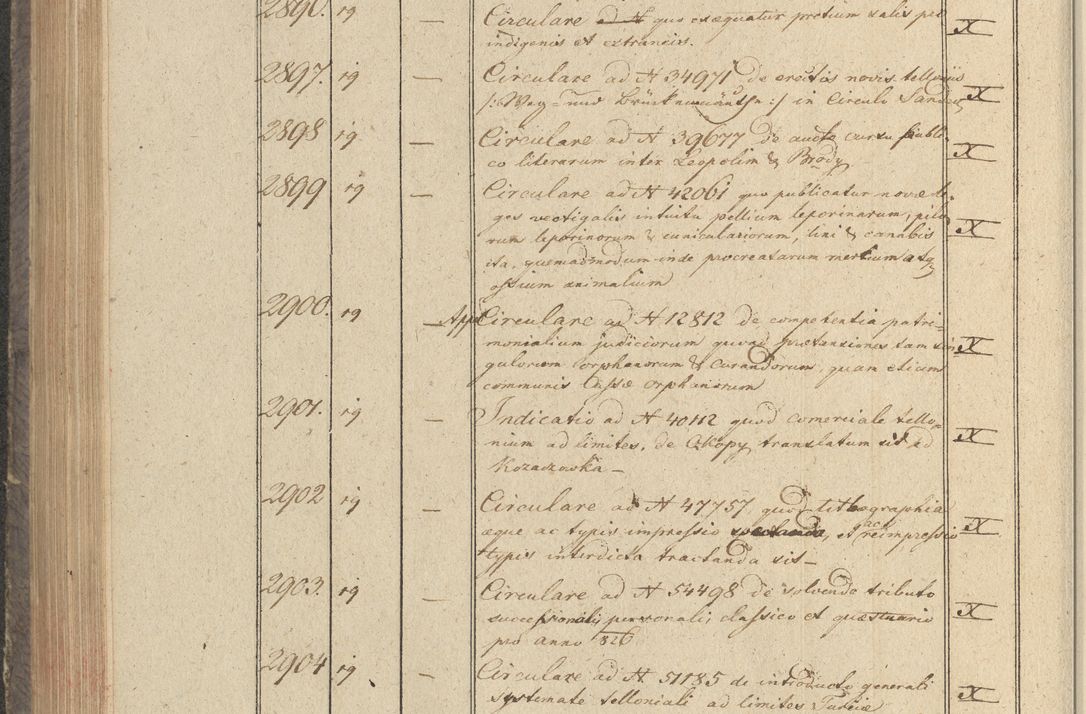 2896. 19 — Circulare ad N quo exequatur pretium salis pro X
indigenis et extraneis.
2897. 19 — Circulare ad N 34971 de erectis novis telloniis
/: Weg= und Brückenmäuthe :/ in Circulo Sandec. X
2898 19 — Circulare ad N 39677 de aucto cursu publi-
co literarum inter Leopolim & Brody X
2899 19 — Circulare ad N 42061 quo publicatur novæ le-
ges vectigalis intuitu pellium leporinarum, pilo X
rum leporinorum & cuniculariorum, lini & canabis
ita, quemadmodum inde procreatarum mercium atq
ossium animalium
2900. 19 — App. Circulare ad N 12812 de competentia patri-
monialium judiciorum quoad prætensiones tam sin X
gulorum orphanorum & curandorum, quam etiam
communis Cassæ orphanorum
2901. 19 — Indicatio ad N 40112 quod comerciale tello-
nium ad limites, de Okopy translatum sit ad X
Kozaczowka —
2902 19 — Circulare ad N 47757 quod lithographia
æque ac typis impressio tractanda, et ac X
reimpressio
typis interdicta tractanda sis —
2903. 19 — Circulare ad N 54498 de solvendo tributo
successionali, personali, classico et quæstuario X
pro anno 826
2904 19 — Circulare ad N 51185 de introducto generali
systemate telloniali ad limites Turciæ X